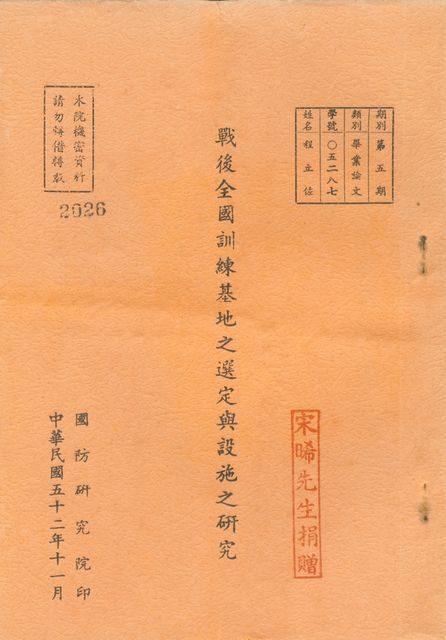 期別 第五期
類別 畢業論文
學號 〇五二八七
姓名 程立佐
戰後全國訓練基地之選定與設施之研究
宋晞先生捐贈
本院機密資料
請勿轉借轉載
2026
國防研究院印
中華民國五十二年十一月